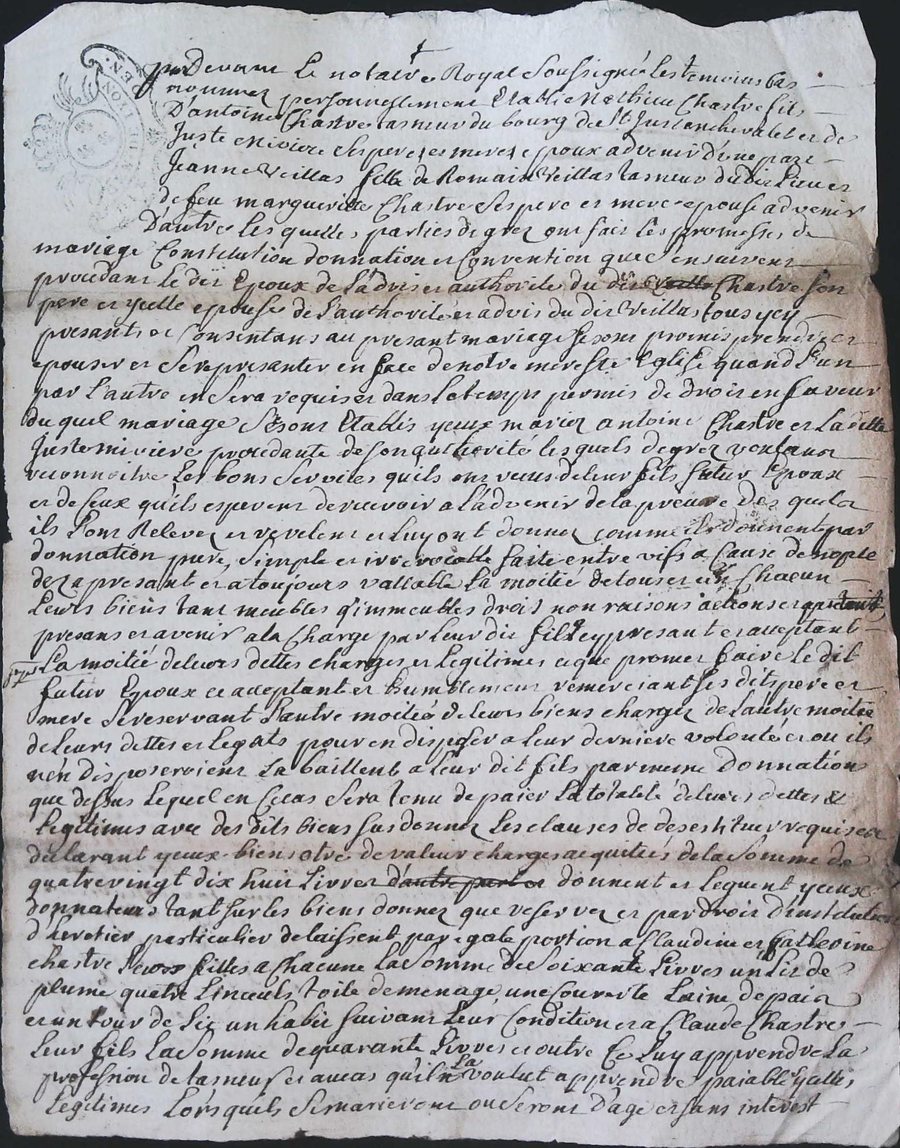 par Devant Le notaire Royal Soussigné Les temoins bas
nommez personnellement Etablis Mathieu Chastre fils
D'antoine Chastre tasneur du bourg de St Just en chevalet et de
Juste Miviere Ses pere et mere epoux advenir d'une part
Jeanne Veillas fille de Romain Veillas tasneur dudit Lieu et
de feu marguerite Chastre Ses pere et mere epouse advenir
D'autre Lesquelles parties de grez ont fait Les promesses de
mariage Constitution donnation et Convention que ensuivent
procedant Ledit Epoux de L'advis et authorité dudit Chastre son
pere et ycelle epouse de L'authorité et advis dudit Veillas tous ycy
presants et Consentans au presant mariage se sont promis prendre et
epouser et Se representer en face de notre mere Ste Eglise quand L'un
par L'autre en Sera requis et dans Le temps permis de droit en faveur
du quel mariage Se sont Etablis yceux mariez antoine Chastre et Laditte
Juste miviere procedante de son authorité les quels de grez voulant
reconnoitre Les bons Services qu'ils ont receus de leur fils futur Epoux
et de Ceux qu'ils esperent de recevoir a L'advenir de la preuve des quels
ils L'ont Relevez et relevent et Luy ont donnez comme ils donnent par
donnation pure, Simple et irrevocable faite entre vifs a Cause de nopce
dez a presant et a toujours vallable La moitié de tous et un Chacun
Leurs biens tant meubles qu'immeubles droits noms raisons actions
presans et avenir a la Charge par Leur dit fils ycy presant et acceptant
La moitié de leurs dettes charges et Legitimes ce que promet faire Le dit
futur Epoux ce acceptant et humblement remerciant ses dits pere et
mere Se reservant L'autre moitié de leurs biens chargez de L'autre moitié
de Leurs dettes et Legats pour en disposer a Leur derniere volonté et ou ils
n'en disposeroient La baillent a Leur dit fils par meme Donnation
que dessus Lequel en Ce cas Sera tenu de paier La totalité de leurs dettes &
Legitimes avec des dits biens sus donnez Les clauses de desestituer requises
declarant yceux biens etre de valeur charges acquitées de la Somme de
quatre vingt dix huit Livres d'autre part et donnent et Leguent yceux
donnateurs tant sur les biens donnez que reservez et par droit d'institution
d'heretier particulier delaissent par egale portion a Claudine et Catherine
chastre Leurs filles a Chacune La Somme de Soixante Livres un Lit de
plume quatre Linceuls toile de menage, une Couverte Laine de paix
et un tour de Lit un habit suivant Leur Condition et a Claude Chastre
Leur fils La Somme de quarante Livres et outre Ce Luy apprendre La
profession de tasneur et au cas qu'il ne La voulut apprendre paiable
Legitimes Lorsqu'ils Se marieront ou Seront D'age et sans interest